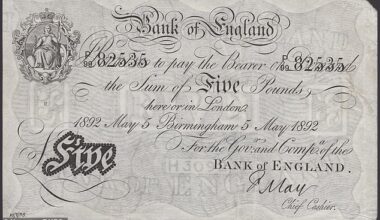 Bank of England
82535 82535
to pay the Bearer on
the Sum of Five Pounds
here or in London
1892 May 5 Birmingham 5 May 1892
For the Govr. and Compa. of the
BANK OF ENGLAND.
Five
F May
Chief Cashier.